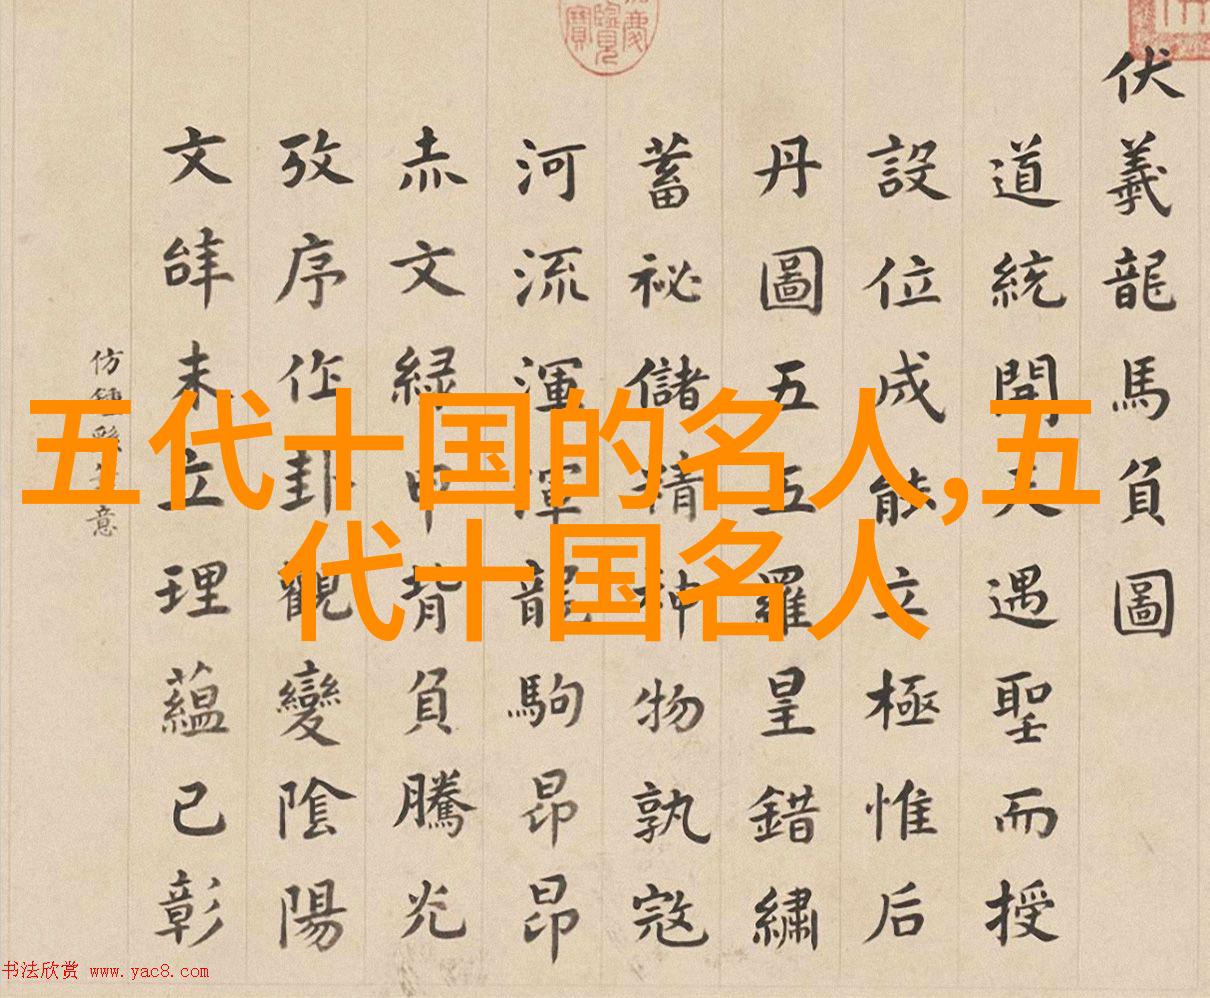 五代十国的名人,五
代十国名人
伏羲龍馬負圖
道統開天遇聖而授
設位成能立極惟后
丹圖五五羅皇錯繡
蓄祕儲精神物孰寇
河流渾渾龍駒昂昂
赤文緑甲背負騰光
攷序作卦觀變陰陽
文辞未立理蘊已彰
仿鍾繇 意
书法欣赏 www.yac8.com